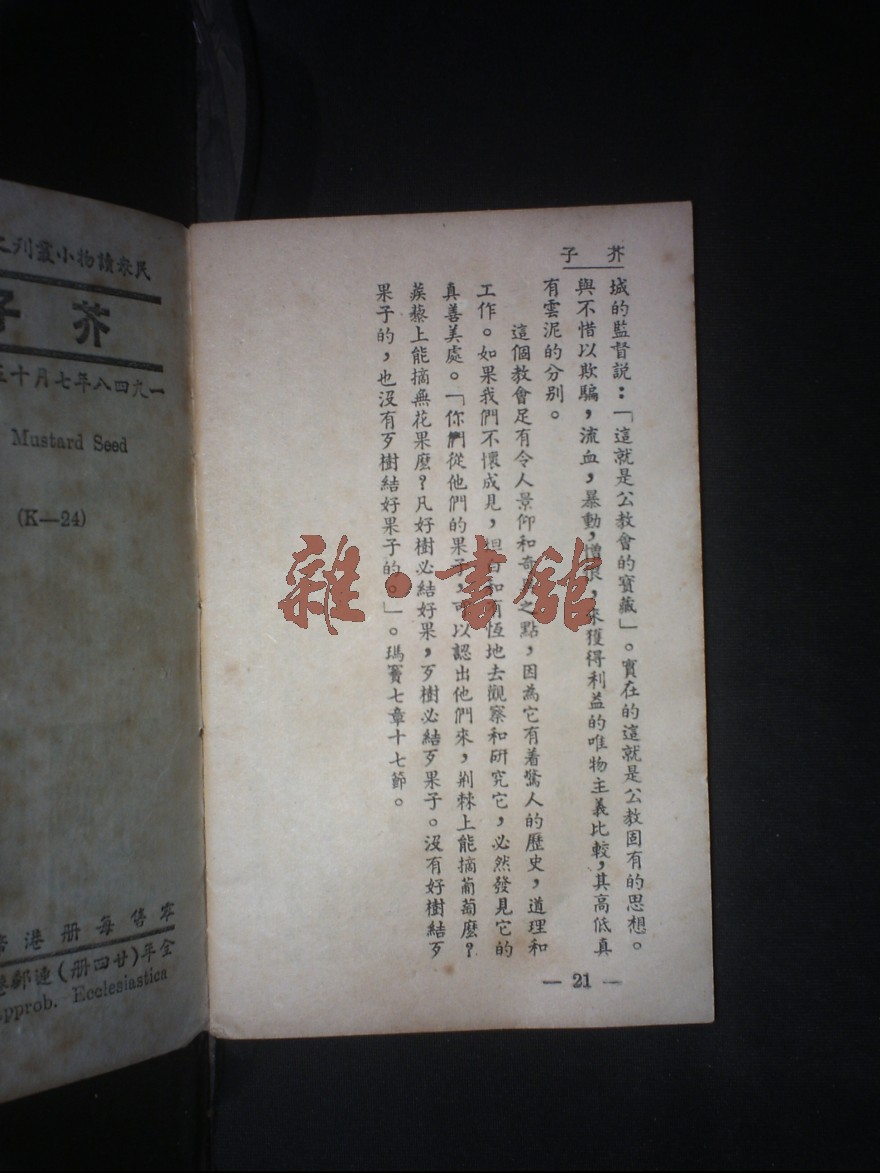 芥子
城的監督説：「這就是公教會的寶藏」。實在的這就是公教固有的思想。
與不惜以欺騙，流血，暴動，憎恨，來獲得利益的唯物主義比較，其高低真
有雲泥的分别。
這個教會足有令人景仰和奇異之點，因為它有着驚人的歷史，道理和
工作。如果我們不懷成見，坦白和有恆地去觀察和研究它，必然發見它的
真善美處。「你們從他們的果子，可以認出他們來，荆棘上能摘葡萄麽？
蒺藜上能摘無花果麽？凡好樹必結好果，歹樹必結歹果子。沒有好樹結歹
果子的，也沒有歹樹結好果子的。」。瑪竇七章十七節。
— 21 —
雜·書館
民衆讀物小叢刊之
芥子
一九四八年七月十五
Mustard Seed
(K—24)
零售每册港
全年(廿四册)連郵港
Approb. Ecclesiastica